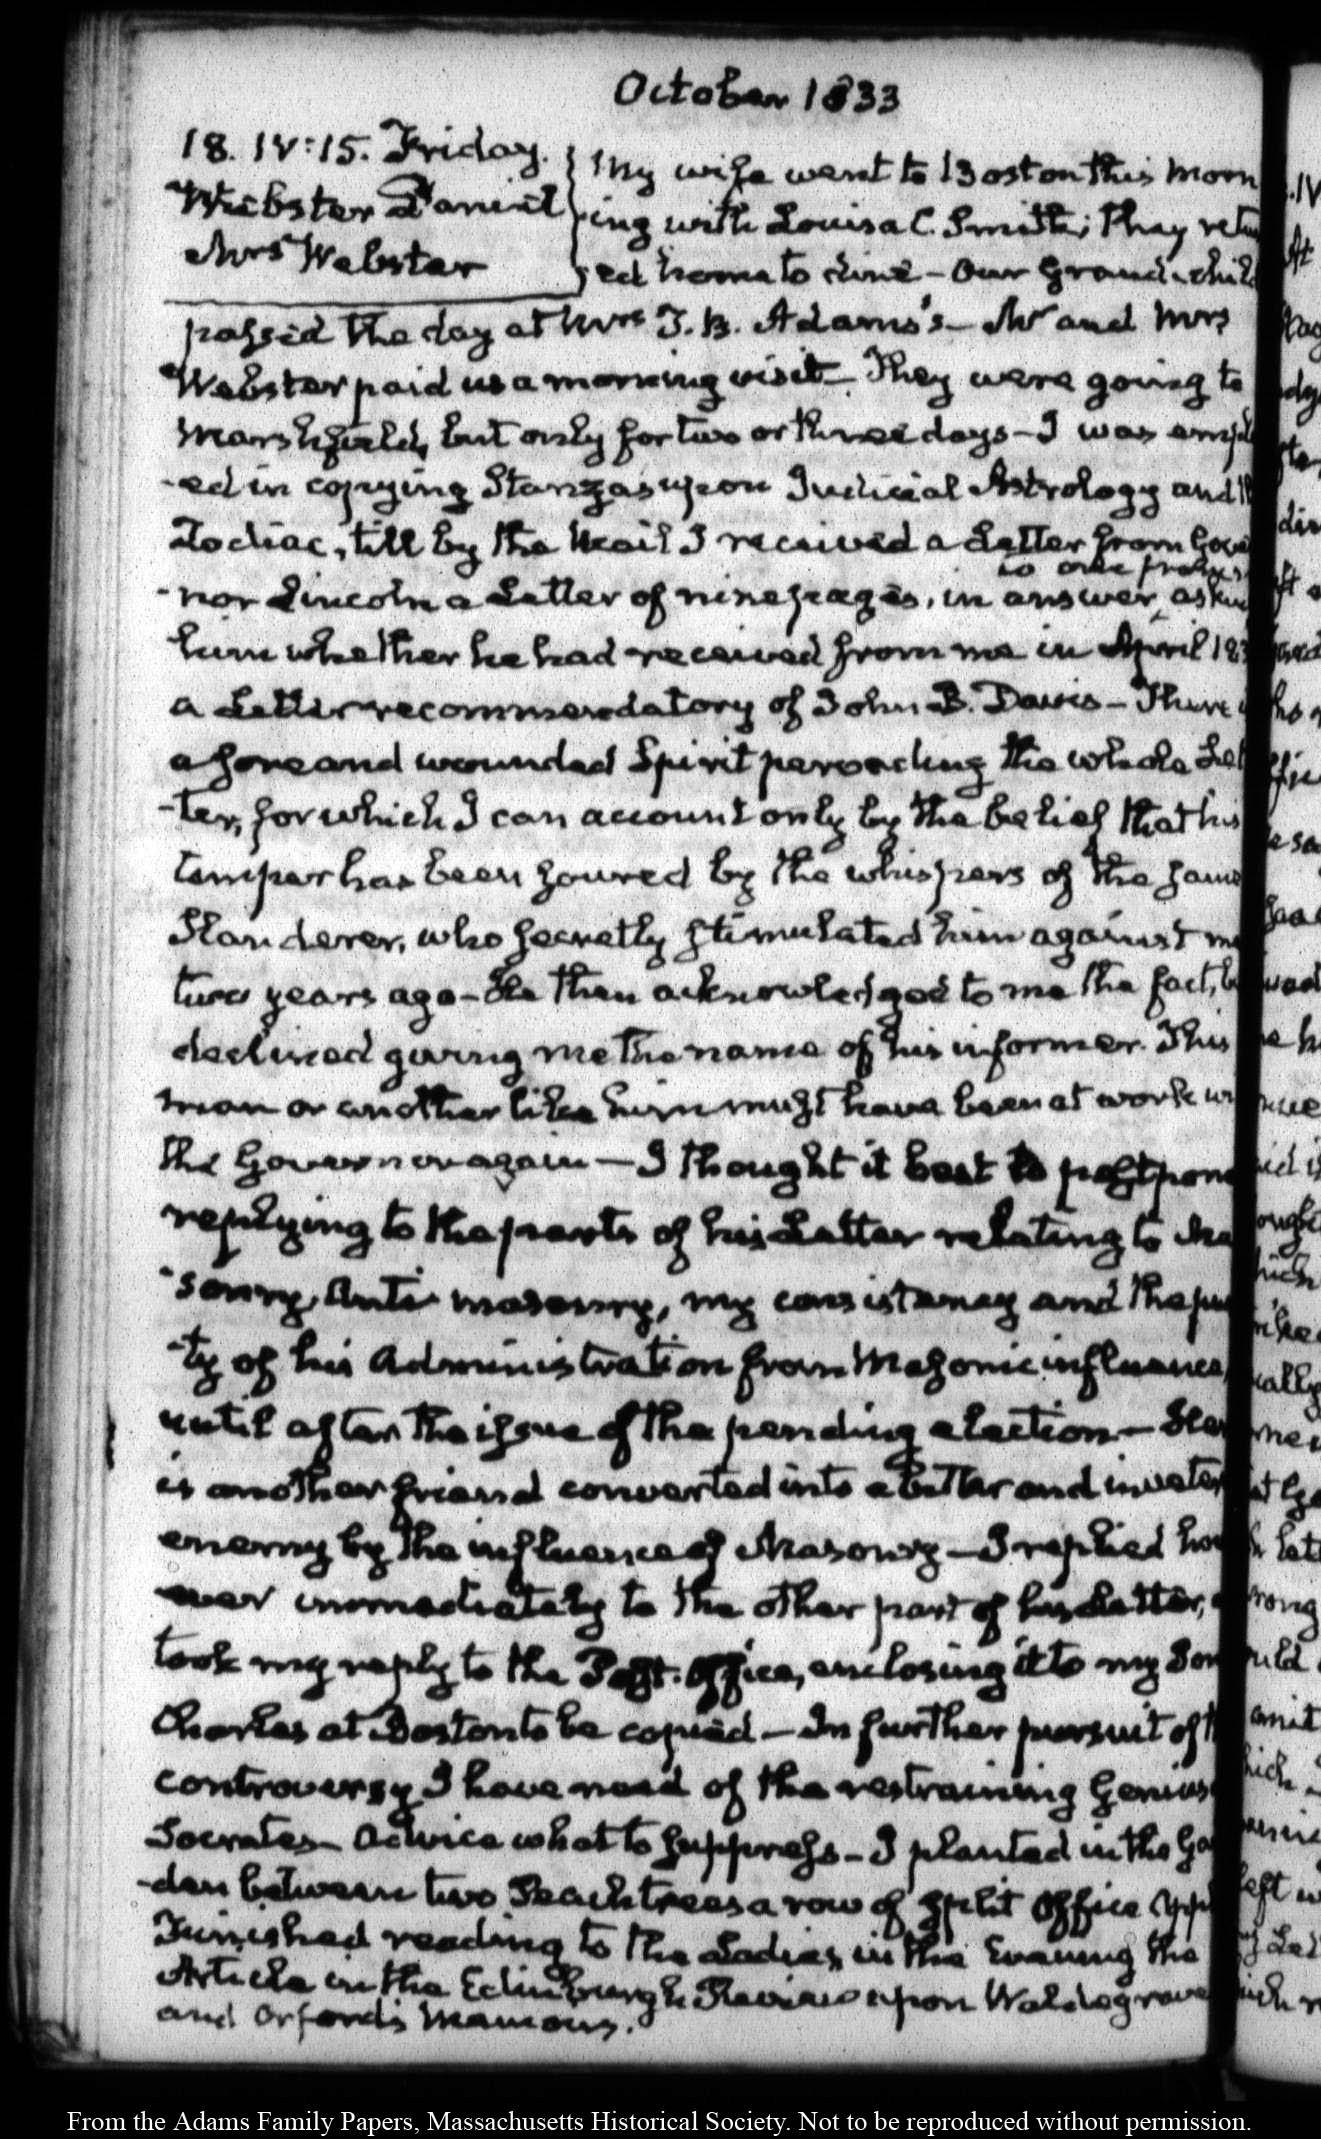 October 1833
18. IV:15. Friday.
Webster Daniel
Mrs Webster
My wife went to Boston this morn
ing with Louisa C. Smith; they retu
ed home to dine – Our Grandchild
passed the day at Mrs T. B. Adams's – Mr and Mrs
Webster paid us a morning visit – They were going to
Marshfield, but only for two or three days – I was empl
-ed in copying Stanzas upon Judicial Astrology and th
Zodiac, till by the Mail I received a Letter from Gove
-nor Lincoln a Letter of nine pages, in answer to one from askin
him whether he had received from me in April 183
a Letter recommendatory of John B. Davis – There
a sore and wounded Spirit pervading the whole Let
-ter, for which I can account only by the belief that his
temper has been soured by the whispers of the same
Slanderer, who secretly stimulated him against me
two years ago – He then acknowledged to me the fact, b
declined giving me the name of his informer. This
man or another like him must have been at work w
the Governor again – I thought it best to postpone
replying to the parts of his Letter relating to Ma
-sonry, Anti-masonry, my consistency and the pu
-ty of his Administration from Masonic influence,
until after the issue of the pending election – Her
is another friend converted into a bitter and invete
enemy by the influence of Masonry – I replied how
ever immediately to the other part of his Letter,
took my reply to the Post-Office, enclosing it to my Son
Charles at Boston to be copied – In further pursuit of t
controversy I have need of the restraining Genius
Socrates – Advice what to suppress – I planted in the Ga
-den between two Peach trees a row of split Office App
Finished reading to the Ladies in the Evening the
Article in the Edinburgh Review upon Waldegrave
and Orford's Memoirs.
From the Adams Family Papers, Massachusetts Historical Society. Not to be reproduced without permission.